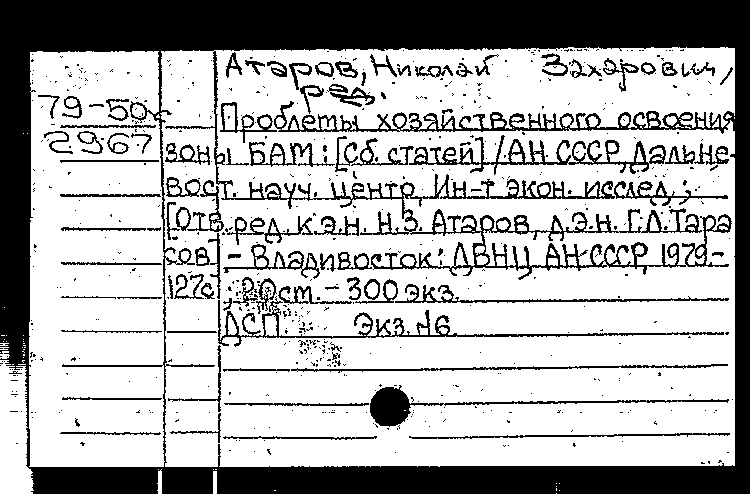 Атаров, Николай Захарович,
ред.
79-50с
2967
Проблемы хозяйственного освоения
зоны БАМ: [Сб. статей] / АН СССР, Дальне-
вост. науч. центр, Ин-т экон. исслед.;
[Отв. ред. к.э.н. Н.З. Атаров, д.э.н. Г.Л. Тара
сов]. - Владивосток: ДВНЦ АН СССР, 1979.-
127с.; 20см. - 300 экз.
ДСП. Экз. №6.